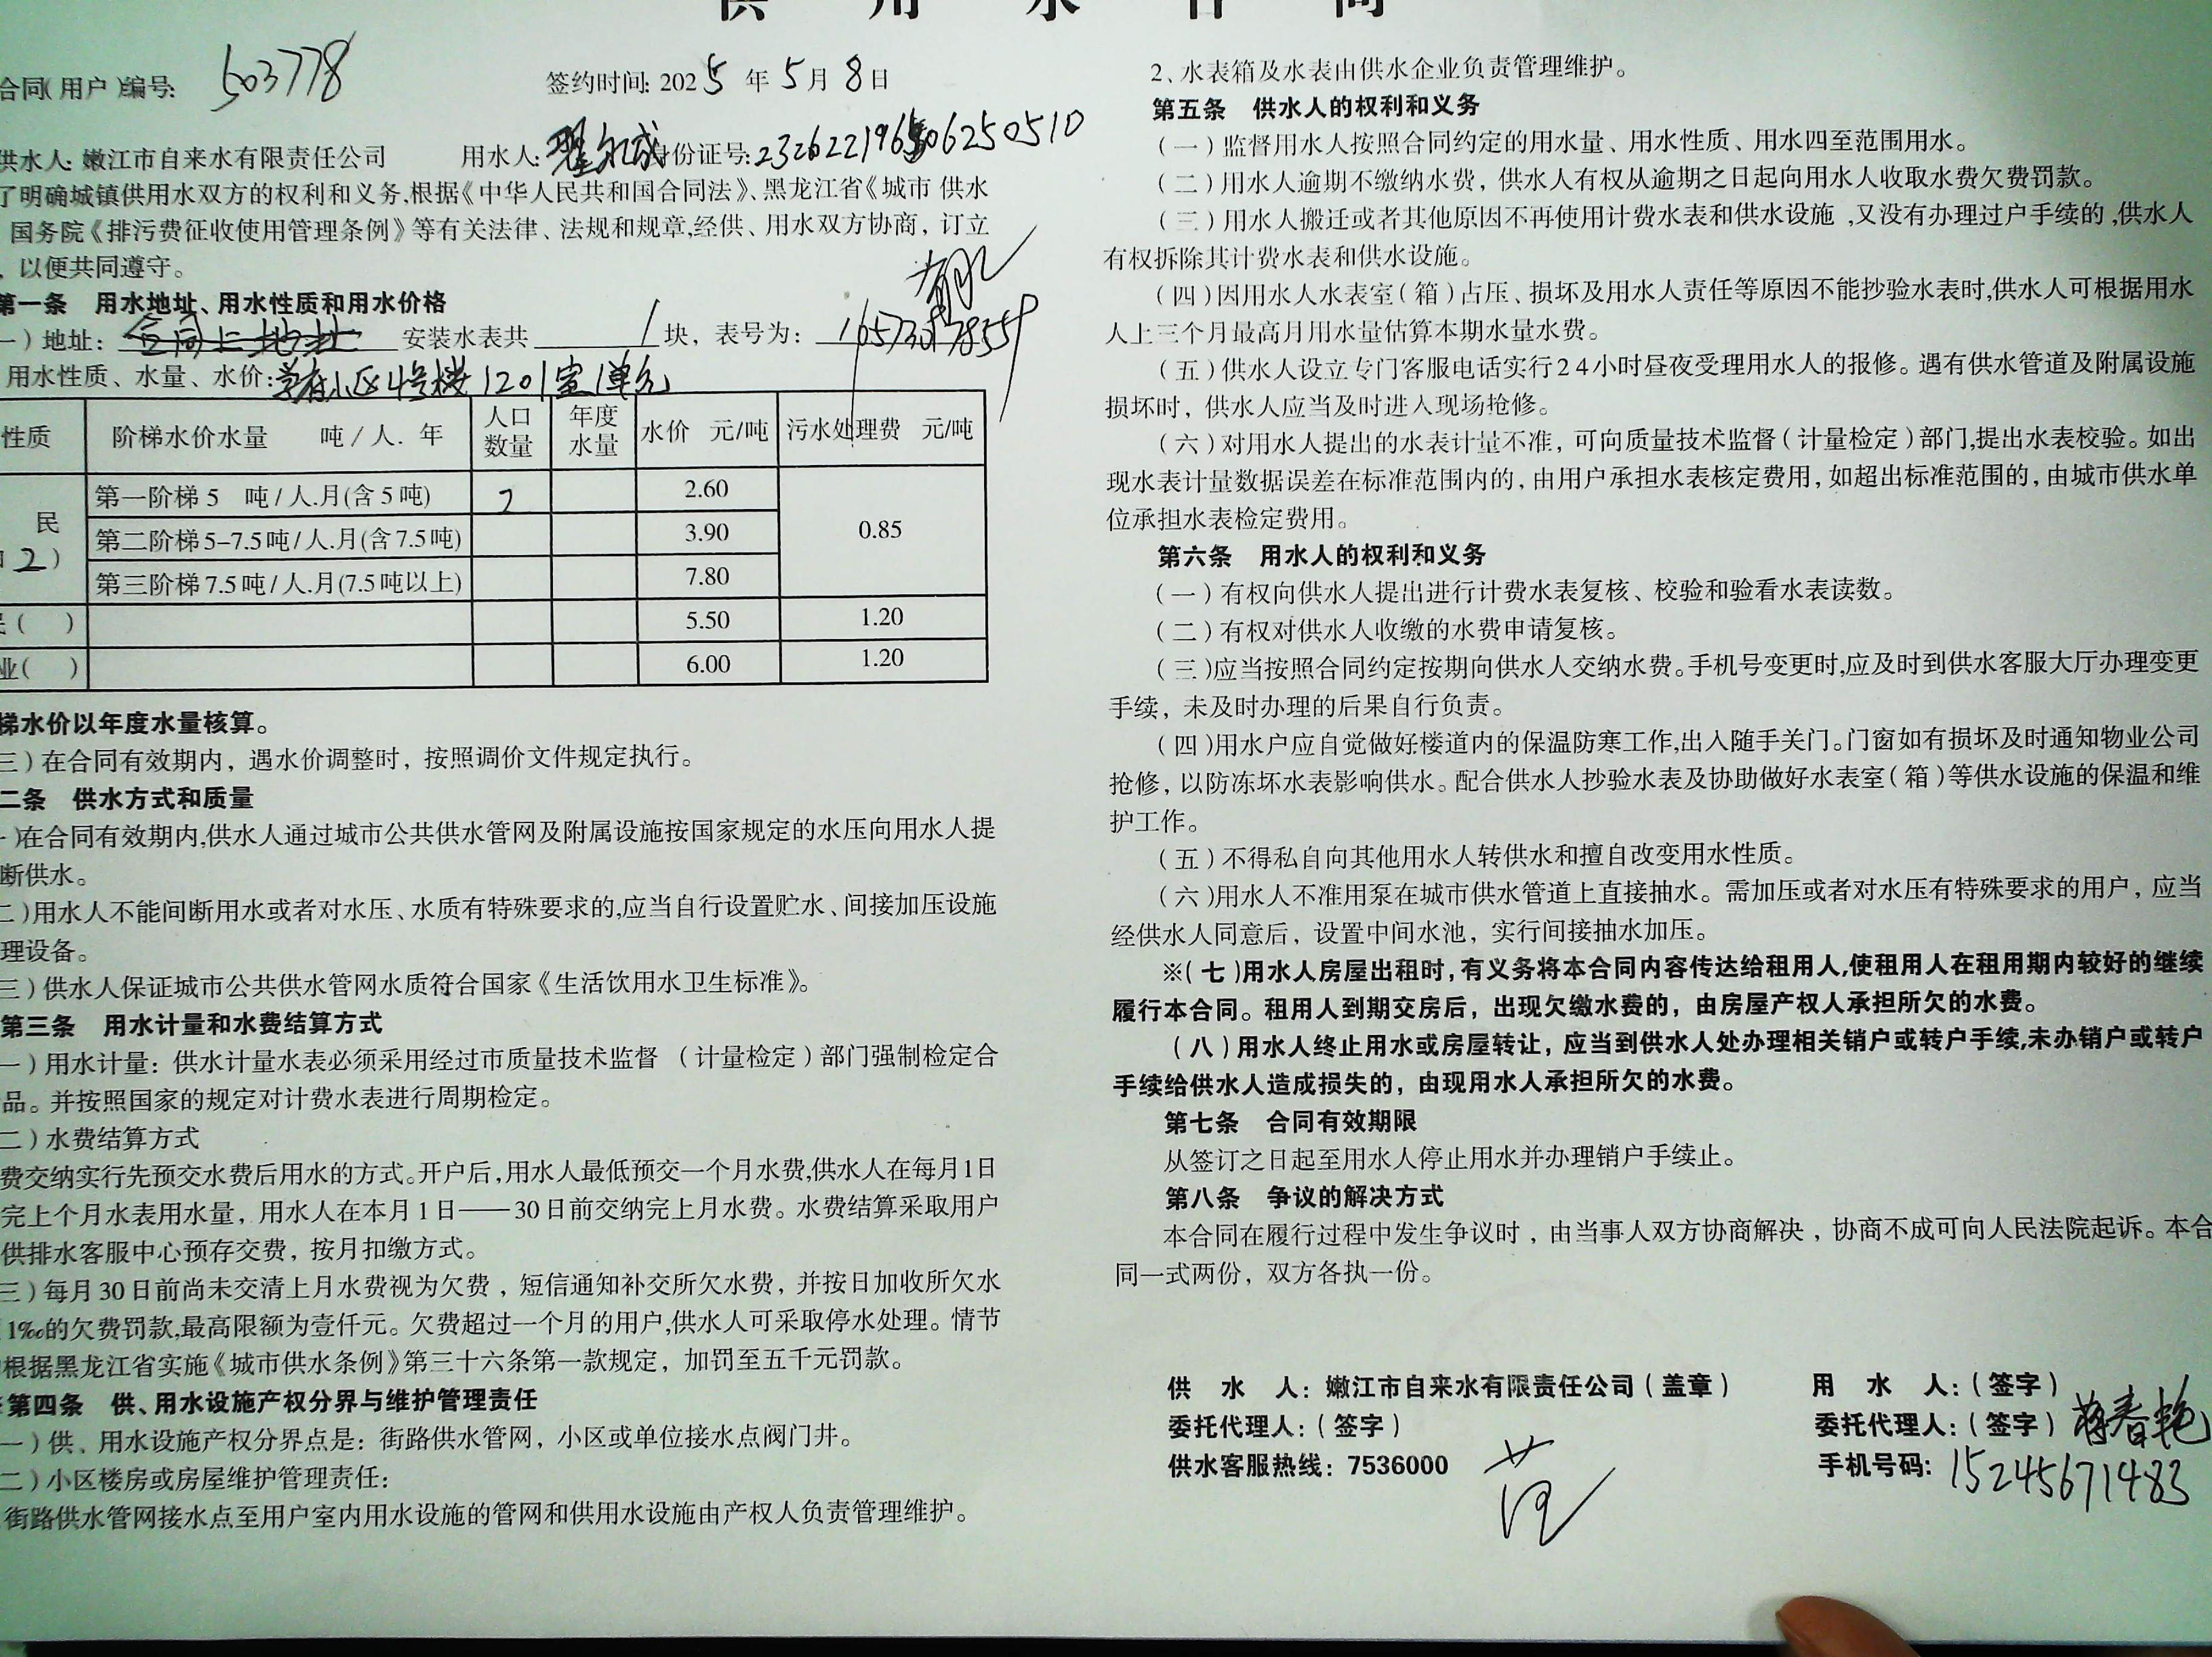 供 用 水 合 同
合同(用户)编号: 503778
签约时间: 2025 年 5 月 8 日
供水人: 嫩江市自来水有限责任公司 用水人: 身份证号:
了明确城镇供用水双方的权利和义务,根据《中华人民共和国合同法》、黑龙江省《城市 供水
国务院《排污费征收使用管理条例》等有关法律、法规和规章,经供、用水双方协商，订立
，以便共同遵守。
第一条 用水地址、用水性质和用水价格
一）地址： 合同上地址 安装水表共 1 块，表号为：
用水性质、水量、水价: 学府小区4号楼1201室1单元
性质 阶梯水价水量 吨／人．年 人口数量 年度水量 水价 元/吨 污水处理费 元/吨
民 第一阶梯 5 吨/人.月(含5吨) 2 2.60 0.85
2） 第二阶梯 5–7.5吨/人.月(含7.5吨) 3.90
第三阶梯 7.5吨/人.月(7.5吨以上) 7.80
( ) 5.50 1.20
业( ) 6.00 1.20
梯水价以年度水量核算。
三）在合同有效期内，遇水价调整时，按照调价文件规定执行。
二条 供水方式和质量
)在合同有效期内,供水人通过城市公共供水管网及附属设施按国家规定的水压向用水人提
断供水。
二)用水人不能间断用水或者对水压、水质有特殊要求的,应当自行设置贮水、间接加压设施
理设备。
三）供水人保证城市公共供水管网水质符合国家《生活饮用水卫生标准》。
第三条 用水计量和水费结算方式
一）用水计量：供水计量水表必须采用经过市质量技术监督 （计量检定）部门强制检定合
品。并按照国家的规定对计费水表进行周期检定。
二）水费结算方式
费交纳实行先预交水费后用水的方式。开户后,用水人最低预交一个月水费,供水人在每月1日
完上个月水表用水量，用水人在本月1日——30日前交纳完上月水费。水费结算采取用户
供排水客服中心预存交费，按月扣缴方式。
三）每月30日前尚未交清上月水费视为欠费，短信通知补交所欠水费，并按日加收所欠水
1‰的欠费罚款,最高限额为壹仟元。欠费超过一个月的用户,供水人可采取停水处理。情节
根据黑龙江省实施《城市供水条例》第三十六条第一款规定，加罚至五千元罚款。
第四条 供、用水设施产权分界与维护管理责任
一）供、用水设施产权分界点是：街路供水管网，小区或单位接水点阀门井。
二）小区楼房或房屋维护管理责任：
街路供水管网接水点至用户室内用水设施的管网和供用水设施由产权人负责管理维护。
2、水表箱及水表由供水企业负责管理维护。
第五条 供水人的权利和义务
（一）监督用水人按照合同约定的用水量、用水性质、用水四至范围用水。
（二）用水人逾期不缴纳水费，供水人有权从逾期之日起向用水人收取水费欠费罚款。
（三）用水人搬迁或者其他原因不再使用计费水表和供水设施，又没有办理过户手续的,供水人
有权拆除其计费水表和供水设施。
（四）因用水人水表室（箱）占压、损坏及用水人责任等原因不能抄验水表时,供水人可根据用水
人上三个月最高月用水量估算本期水量水费。
（五）供水人设立专门客服电话实行24小时昼夜受理用水人的报修。遇有供水管道及附属设施
损坏时，供水人应当及时进入现场抢修。
（六）对用水人提出的水表计量不准，可向质量技术监督（计量检定）部门,提出水表校验。如出
现水表计量数据误差在标准范围内的，由用户承担水表核定费用，如超出标准范围的，由城市供水单
位承担水表检定费用。
第六条 用水人的权利和义务
（一）有权向供水人提出进行计费水表复核、校验和验看水表读数。
（二）有权对供水人收缴的水费申请复核。
（三)应当按照合同约定按期向供水人交纳水费。手机号变更时,应及时到供水客服大厅办理变更
手续，未及时办理的后果自行负责。
（四)用水户应自觉做好楼道内的保温防寒工作,出入随手关门。门窗如有损坏及时通知物业公司
抢修，以防冻坏水表影响供水。配合供水人抄验水表及协助做好水表室（箱）等供水设施的保温和维
护工作。
（五）不得私自向其他用水人转供水和擅自改变用水性质。
（六)用水人不准用泵在城市供水管道上直接抽水。需加压或者对水压有特殊要求的用户，应当
经供水人同意后，设置中间水池，实行间接抽水加压。
※（七)用水人房屋出租时,有义务将本合同内容传达给租用人,使租用人在租用期内较好的继续
履行本合同。租用人到期交房后，出现欠缴水费的，由房屋产权人承担所欠的水费。
（八）用水人终止用水或房屋转让，应当到供水人处办理相关销户或转户手续,未办销户或转户
手续给供水人造成损失的，由现用水人承担所欠的水费。
第七条 合同有效期限
从签订之日起至用水人停止用水并办理销户手续止。
第八条 争议的解决方式
本合同在履行过程中发生争议时，由当事人双方协商解决，协商不成可向人民法院起诉。本合
同一式两份，双方各执一份。
供 水 人：嫩江市自来水有限责任公司（盖章） 用 水 人：（签字）
委托代理人：（签字） 委托代理人：（签字）蒋春艳
供水客服热线：7536000 范 手机号码: 15245671483